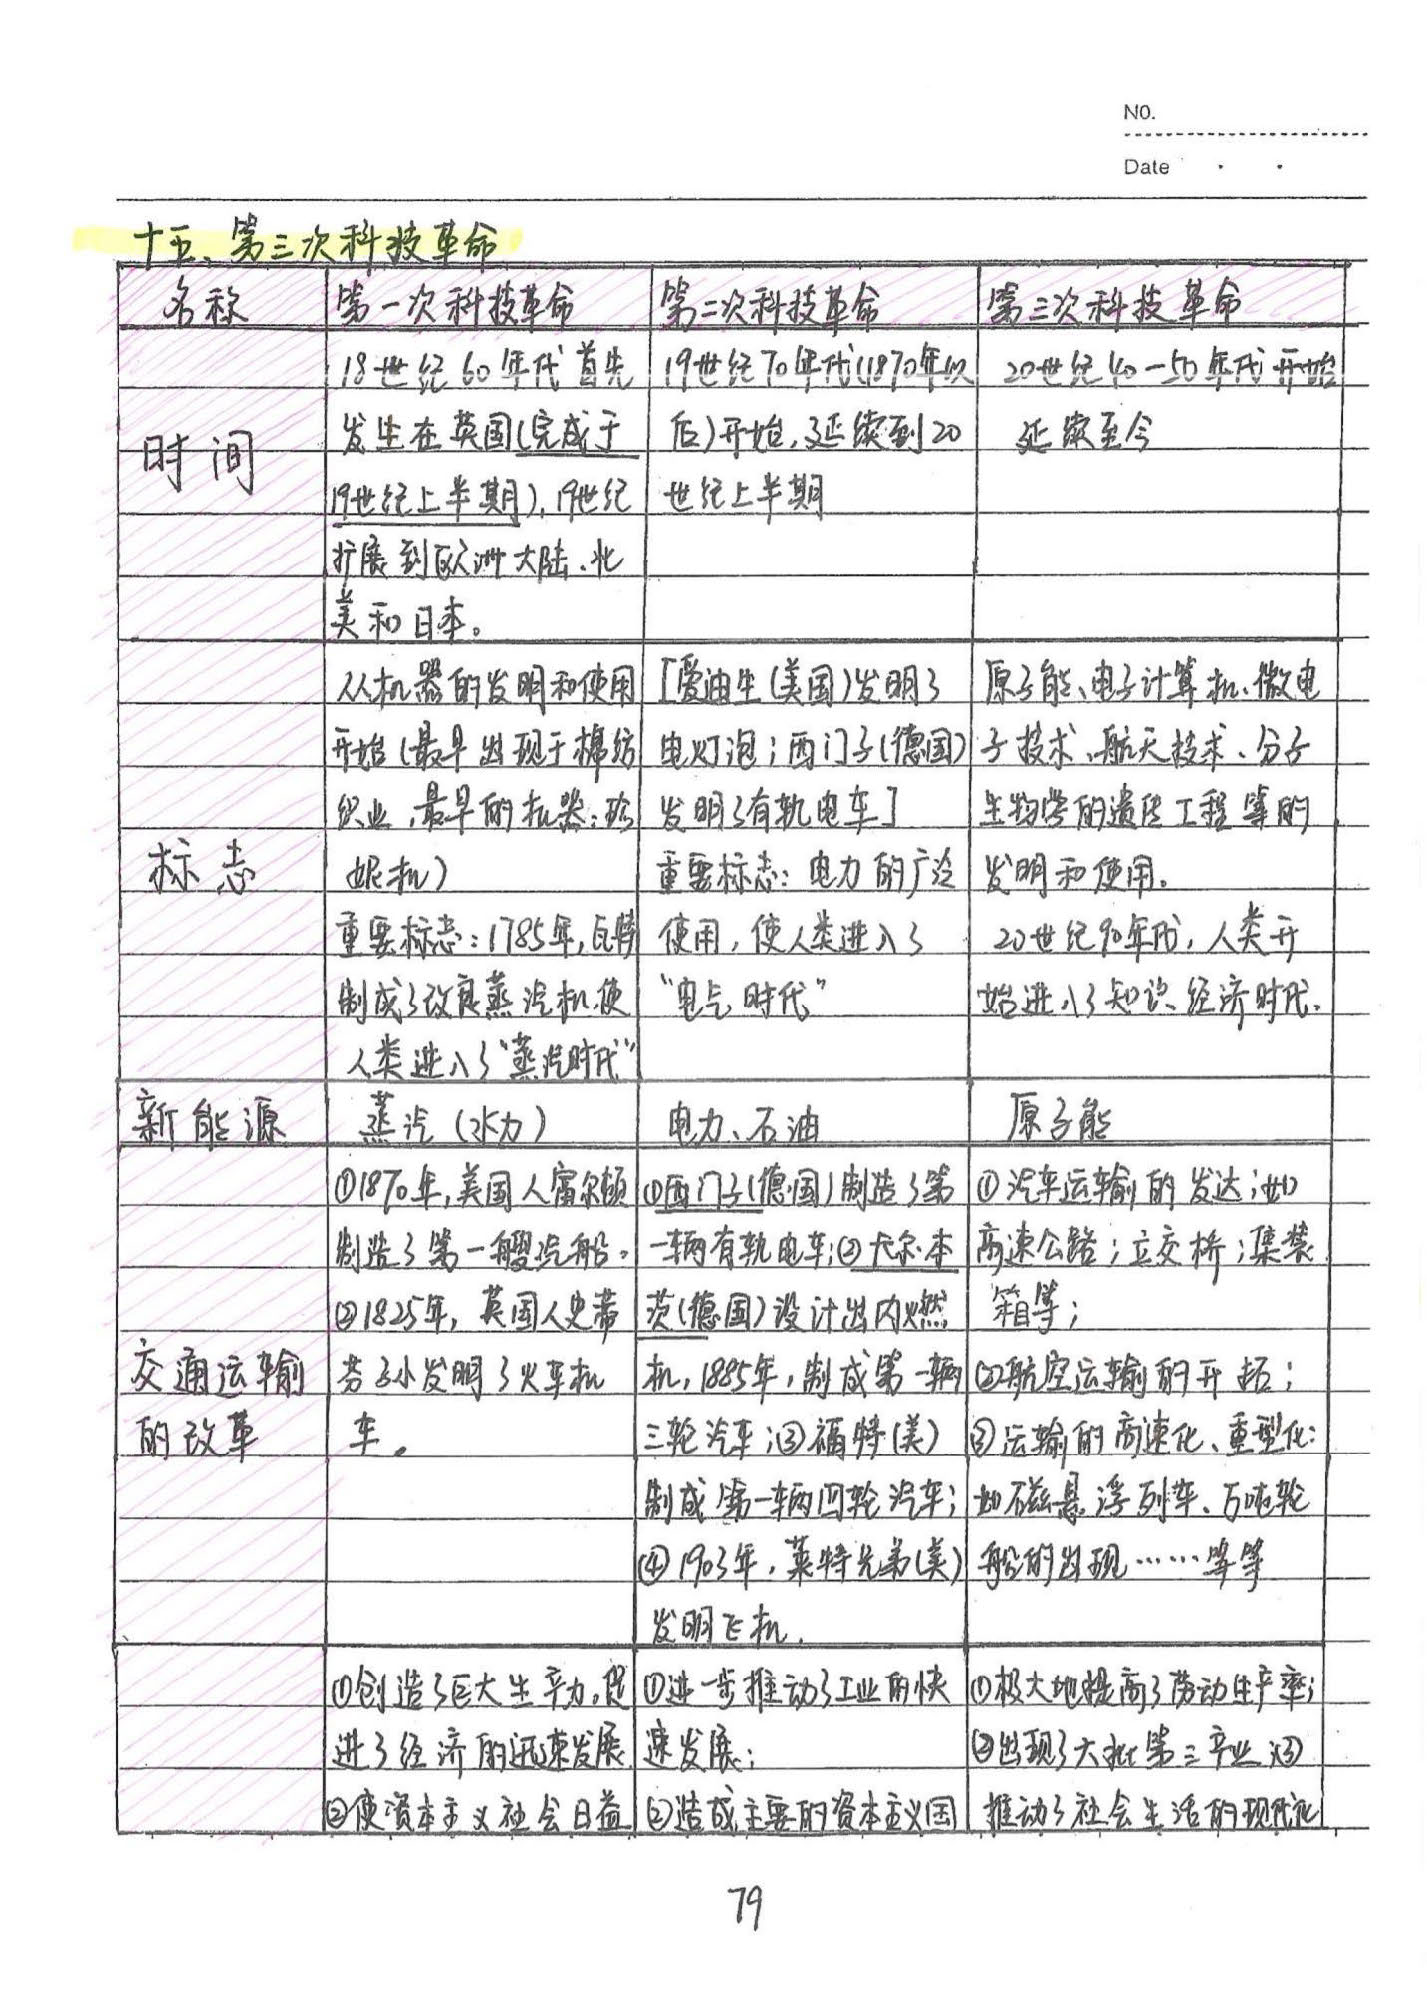 NO.
Date
十五、第三次科技革命
名称
第一次科技革命
第二次科技革命
第三次科技革命
时间
18世纪60年代首先
发生在英国(完成于
19世纪上半期),19世纪
扩展到欧洲大陆、北
美和日本。
19世纪70年代(1870年以
后)开始,延续到20
世纪上半期
20世纪40—50年代开始
延续至今
标志
从机器的发明和使用
开始(最早出现于棉纺
织业,最早的机器:珍
妮机)
重要标志:1785年,瓦特
制成了改良蒸汽机,使
人类进入了“蒸汽时代”
[爱迪生(美国)发明了
电灯泡;西门子(德国)
发明了有轨电车]
重要标志:电力的广泛
使用,使人类进入了
“电气时代”
原子能、电子计算机、微电
子技术、航天技术、分子
生物学的遗传工程等的
发明和使用。
20世纪90年代,人类开
始进入了知识经济时代.
新能源
蒸汽(水力)
电力、石油
原子能
交通运输
的改革
①1870年,美国人富尔顿
制造了第一艘汽船。
②1825年,英国人史蒂
芬孙发明了火车机
车。
①西门子(德国)制造了第
一辆有轨电车;②卡尔·本
茨(德国)设计出内燃
机,1885年,制成第一辆
三轮汽车;③福特(美)
制成第一辆四轮汽车;
④1903年,莱特兄弟(美)
发明飞机.
①汽车运输的发达;如
高速公路;立交桥;集装
箱等;
②航空运输的开拓;
③运输的高速化、重型化:
如磁悬浮列车、万吨轮
船的出现……等等
①创造了巨大生产力,促
进了经济的迅速发展
②使资本主义社会日益
①进一步推动了工业的快
速发展;
②造成主要的资本主义国
①极大地提高了劳动生产率;
②出现了大批第三产业;③
推动了社会生活的现代化
79